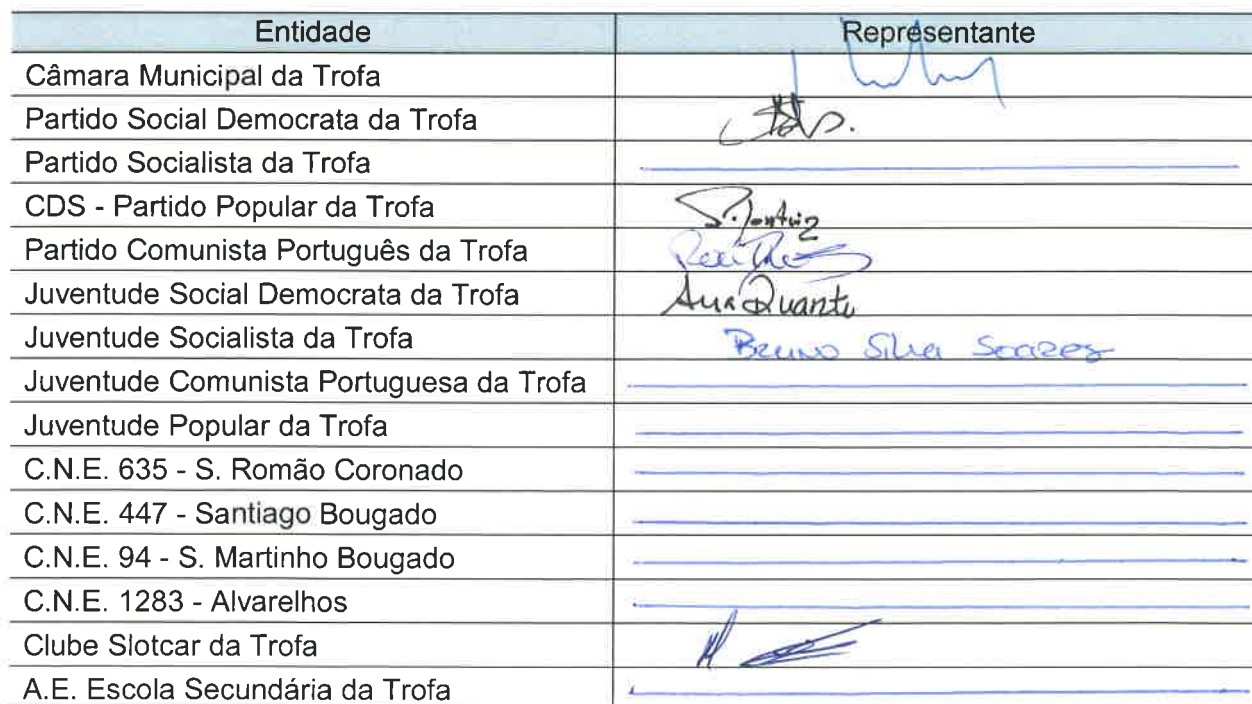 Entidade Representante
Câmara Municipal da Trofa
Partido Social Democrata da Trofa
Partido Socialista da Trofa
CDS - Partido Popular da Trofa
Partido Comunista Português da Trofa
Juventude Social Democrata da Trofa Ana
Juventude Socialista da Trofa Bruno Silva Soares
Juventude Comunista Portuguesa da Trofa
Juventude Popular da Trofa
C.N.E. 635 - S. Romão Coronado
C.N.E. 447 - Santiago Bougado
C.N.E. 94 - S. Martinho Bougado
C.N.E. 1283 - Alvarelhos
Clube Slotcar da Trofa
A.E. Escola Secundária da Trofa